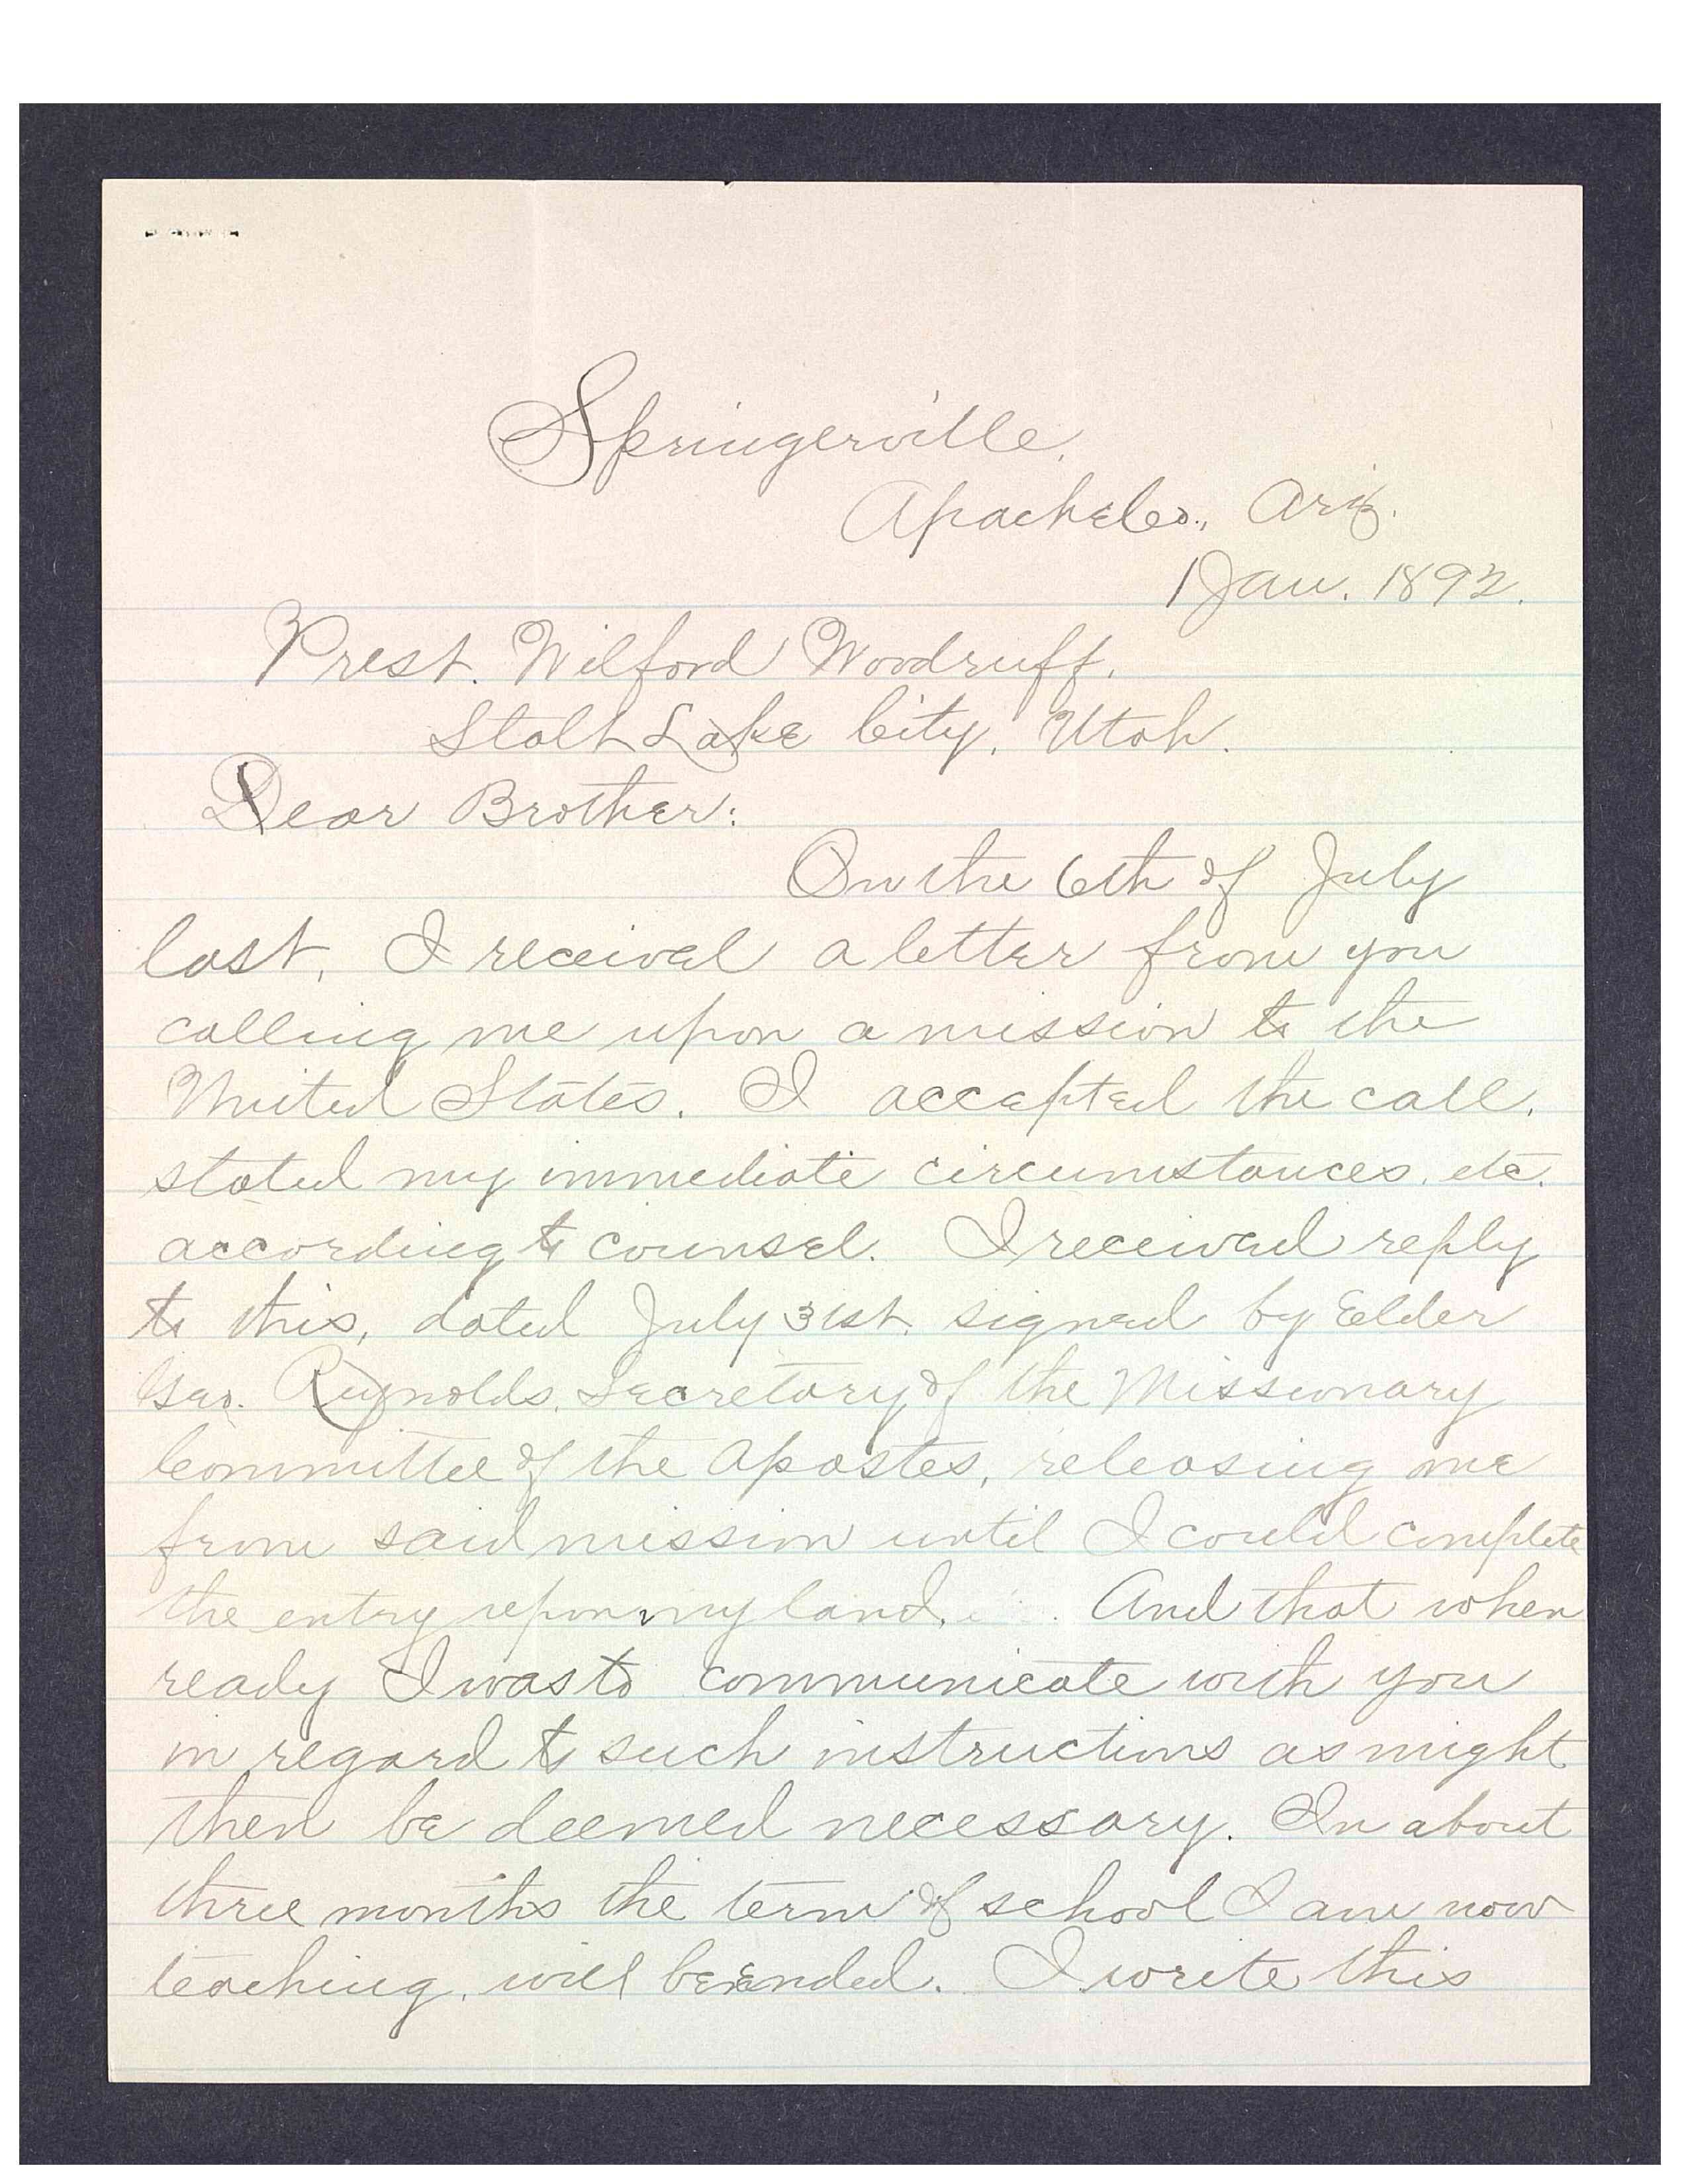 Springerville,
Apache Co., Ariz.
1 Jan. 1892.
Prest. Wilford Woodruff.
Stalt Lake City, Utah.
Dear Brother:
On the 6th of July
last, I received a letter from you
calling me upon a mission to the
United States. I accepted the call,
stated my immediate circumstances, etc.
according to counsel. I received reply
to this, dated July 31st, signed by Elder
Geo. Reynolds, Secretary of the Missionary
Committee of the Apostes, releasing me
from said mission until I could complete
the entry upon my land. And that when
ready I was to communicate with you
in regard to such instructions as might
then be deemed necessary. In about
three months the term of school I am now
teaching, will be ended. I write this